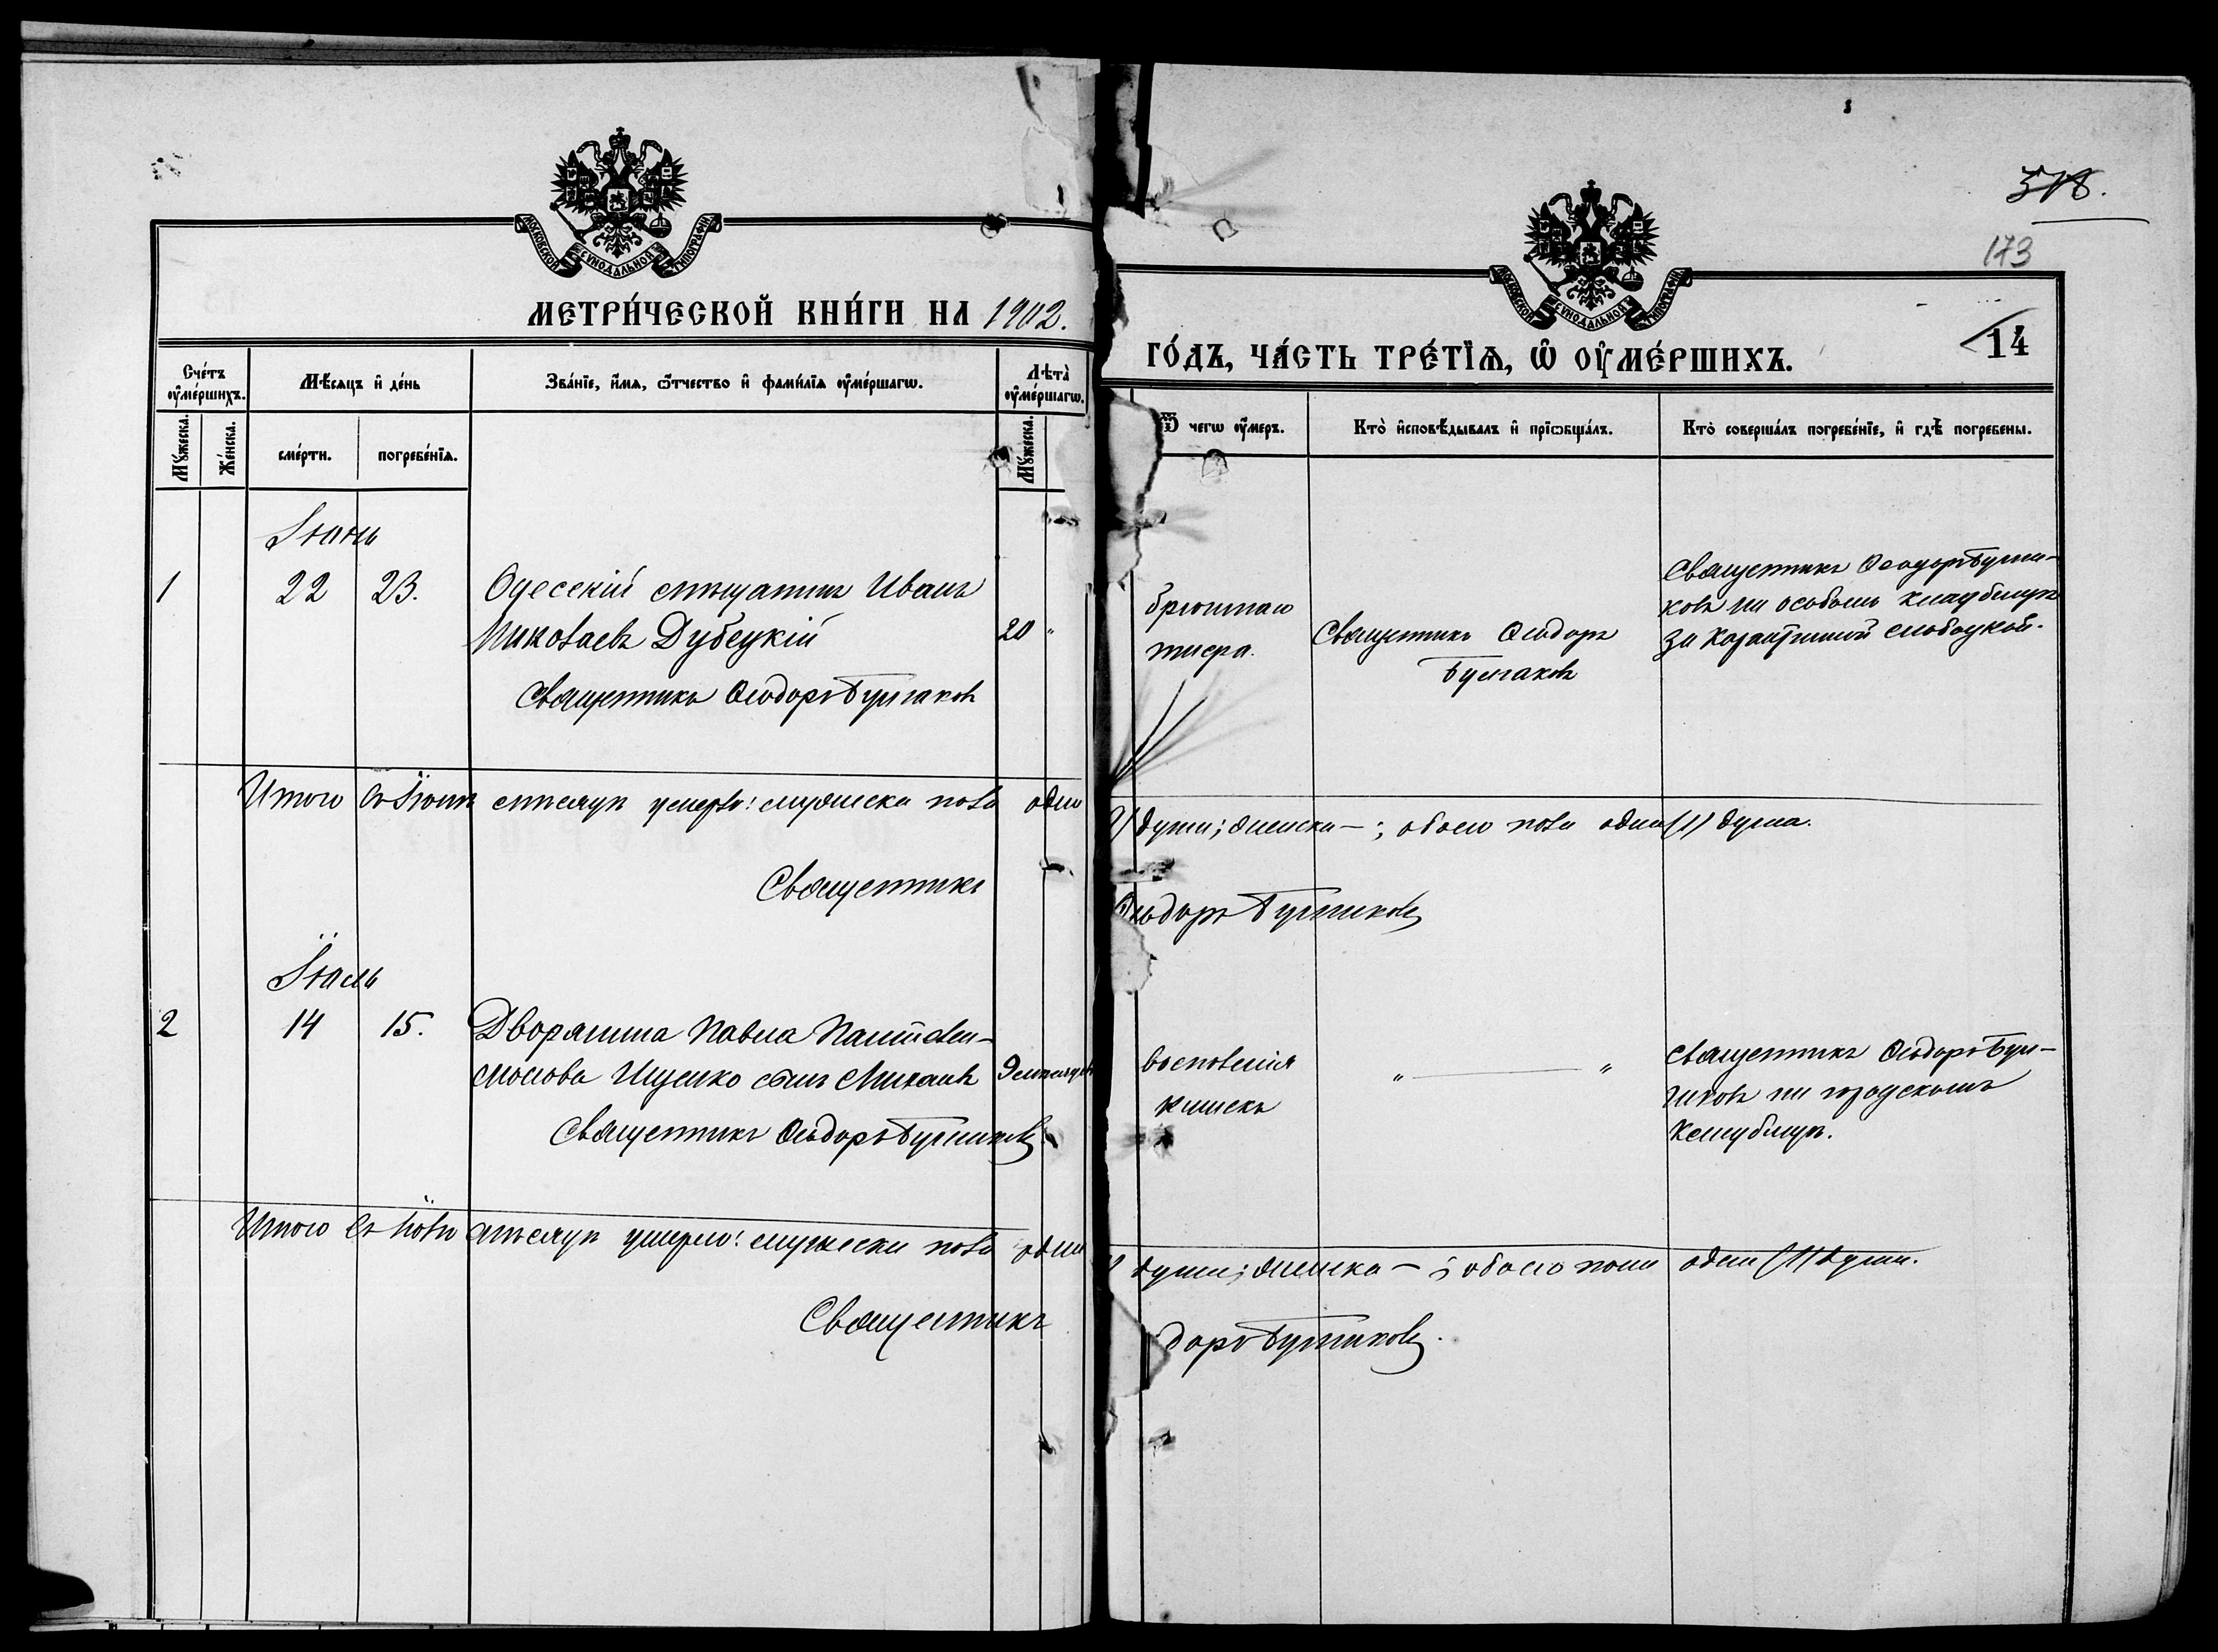 МОСКОВСКОЙ СѴНОДАЛЬНОЙ ТИПОГРАФІИ
МЕТРИ́ЧЕСКОЙ КНИ́ГИ НА 1902.
Сче́тъ ᲂу҆ме́ршихъ.
Мѣ́сяцъ и҆ де́нь
Зва́нїе, и҆́мя, ѻ҆́тчество и҆ фами́лїя ᲂу҆ме́ршагѡ.
Лѣта̀ ᲂу҆ме́ршагѡ.
Мꙋ́жеска.
Же́нска.
сме́рти.
погребе́нїѧ.
Мꙋ́жеска.
Іюнь
1 22 23. Одесскій мѣщанинъ Иванъ
Николаевъ Дубецкій 20 "
Священникъ Ѳеодоръ Булгаковъ
Итого въ Іюнѣ мѣсяцѣ умерло: мужеска пола одна
Священникъ
Іюль
2 14 15. Дворянина Павла Пантелеи-
монова Ищенко сынъ Михаилъ 9 мѣсяцевъ
Священникъ Ѳеодоръ Булгаковъ
Итого въ Іюлѣ мѣсяцѣ умерло: мужеска пола одна
Священникъ
378.
173
МОСКОВСКОЙ СѴНОДАЛЬНОЙ ТИПОГРАФІИ
14
ГО́ДЪ, ЧА́СТЬ ТРЕ́ТЇѦ, Ѡ҆ ОУ҆МЕ́РШИХЪ.
Ѿ чегѡ ᲂу҆́меръ.
Кто̀ и҆сповѣ́дывалъ и҆ прїѻбща́лъ.
Кто̀ соверша́лъ погребе́нїе, и҆ гдѣ̀ погребены.
брюшнаго
тифа.
Священникъ Ѳеодоръ
Булгаковъ
Священникъ Ѳеодоръ Булга-
ковъ на особомъ кладбищѣ
за Карантинной слободкой.
душа; женска — ; обоего пола одна (1) душа.
Ѳеодоръ Булгаковъ
воспаленія
кишекъ
" — "
Священникъ Ѳеодоръ Бул-
гаковъ на городскомъ
кладбищѣ.
душа; женска — ; обоего пола одна (1) душа.
доръ Булгаковъ.